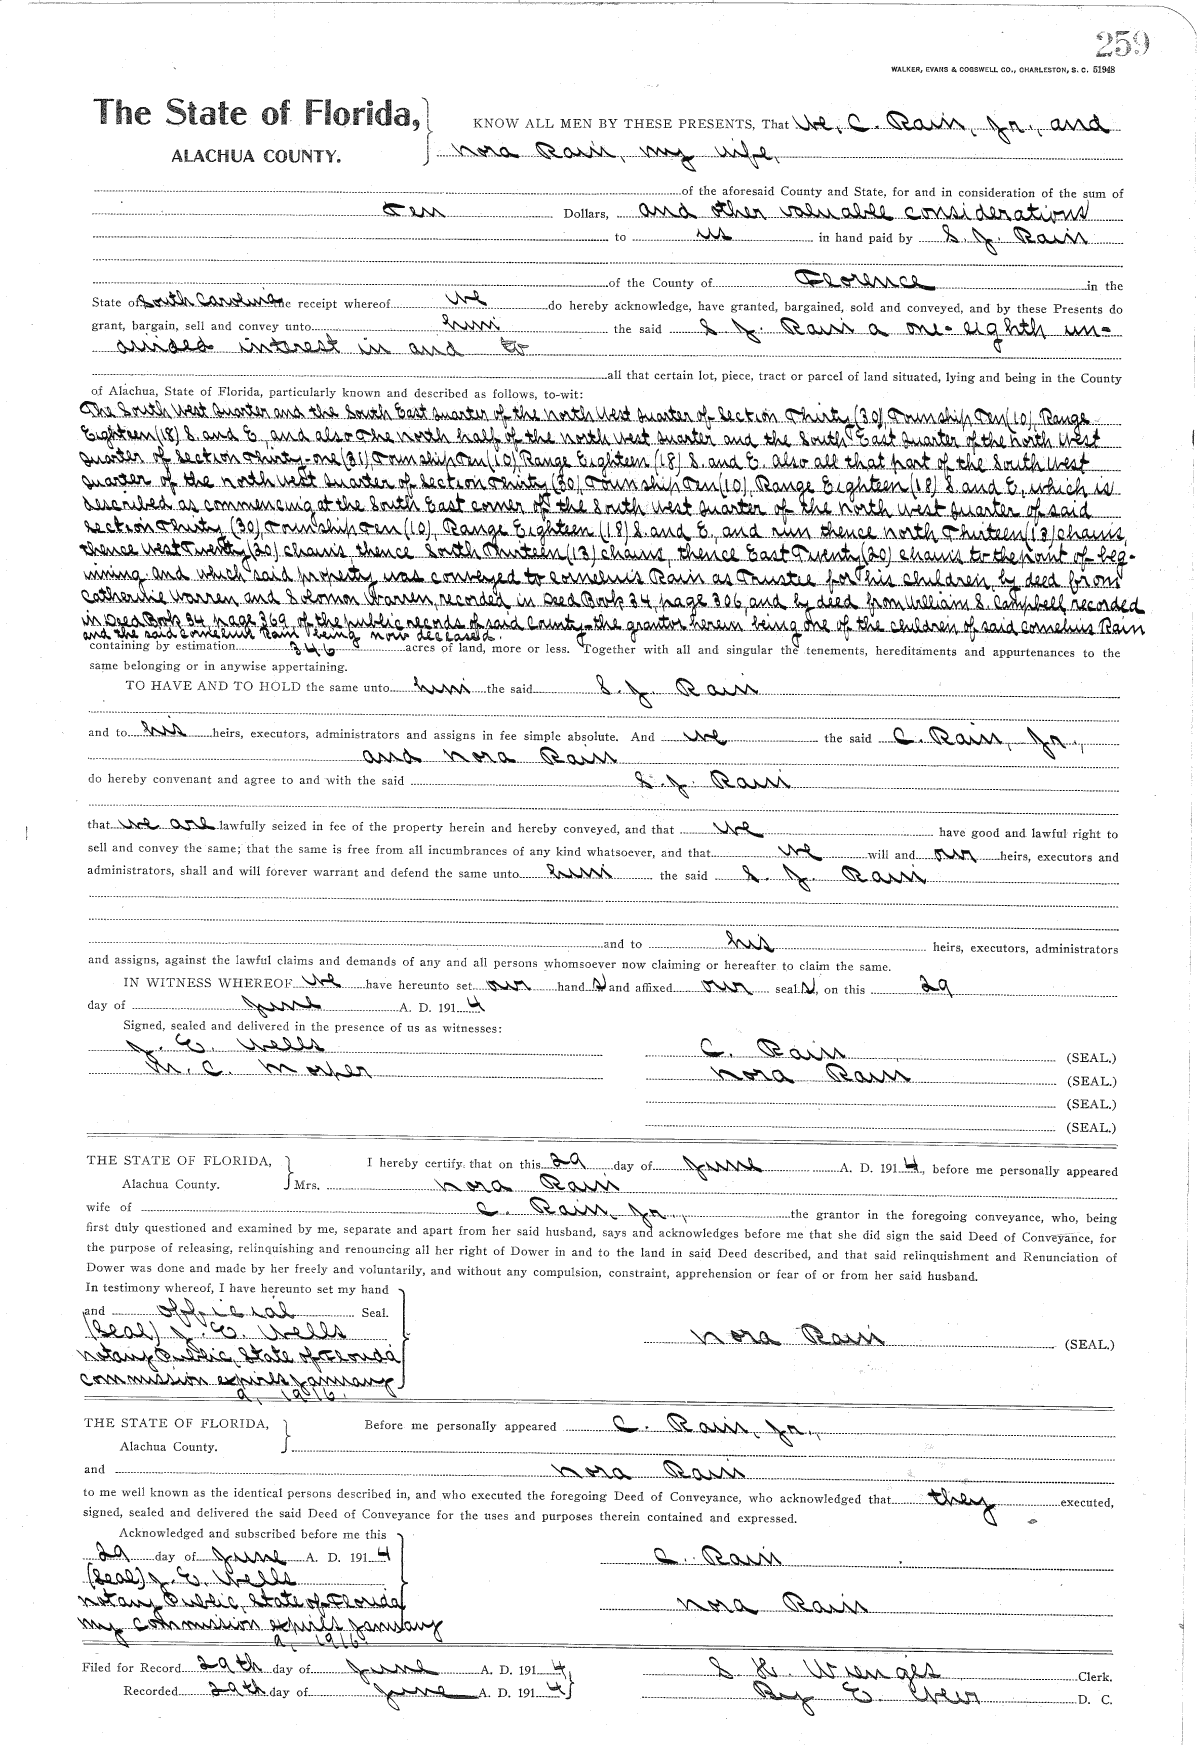 259
WALKER, EVANS & COGSWELL CO., CHARLESTON, S. C. 51948
The State of Florida,
ALACHUA COUNTY.
KNOW ALL MEN BY THESE PRESENTS, That We, C. Rain, Jr., and
Nora Rain, my wife,
of the aforesaid County and State, for and in consideration of the sum of
Ten Dollars, and other valuable considerations
to us in hand paid by S. J. Rain
of the County of Florence in the
State of South Carolina the receipt whereof we do hereby acknowledge, have granted, bargained, sold and conveyed, and by these Presents do
grant, bargain, sell and convey unto him the said S J. Rain a one-eighth un-
divided interest in and to
all that certain lot, piece, tract or parcel of land situated, lying and being in the County
of Alachua, State of Florida, particularly known and described as follows, to-wit:
The South West Quarter and the South East Quarter of the North West Quarter of Section Thirty (30), Township Ten (10), Range
Eighteen (18) S. and E, and also The North half of the North West Quarter and the South East Quarter of the North West
Quarter of Section Thirty-one (31) Township Ten (10) Range Eighteen (18) S. and E. also all that part of the South West
Quarter of the North West Quarter of Section Thirty (30), Township Ten (10), Range Eighteen (18) S. and E, which is
described as commencing at the South East corner of the South West Quarter of the North West Quarter of said
Section Thirty (30), Township Ten (10), Range Eighteen (18) S. and E, and run thence North Thirteen (13) chains,
thence West Twenty (20) chains thence South Thirteen (13) chains, thence East Twenty (20) chains to the point of beg-
inning. and which said property was conveyed to Cornelius Rain as Trustee for his children, by deed from
Catherine Warren and Solomon Warren, recorded in Deed Book 34, page 306, and by deed from William S. Campbell recorded
in Deed Book 34 page 369 of the public records of said County- the grantor herein being one of the children of said Cornelius Rain
and the said Cornelius Rain being now deceased.
containing by estimation 346 acres of land, more or less. Together with all and singular the tenements, hereditaments and appurtenances to the
same belonging or in anywise appertaining.
TO HAVE AND TO HOLD the same unto him the said S. J. Rain
and to his heirs, executors, administrators and assigns in fee simple absolute. And we the said C. Rain, Jr.,
and Nora Rain
do hereby convenant and agree to and with the said S. J. Rain
that we are lawfully seized in fee of the property herein and hereby conveyed, and that we have good and lawful right to
sell and convey the same; that the same is free from all incumbrances of any kind whatsoever, and that we will and our heirs, executors and
administrators, shall and will forever warrant and defend the same unto him the said S. J. Rain
and to his heirs, executors, administrators
and assigns, against the lawful claims and demands of any and all persons whomsoever now claiming or hereafter to claim the same.
IN WITNESS WHEREOF we have hereunto set our hand s and affixed our seal s, on this 29
day of June A. D. 191 4
Signed, sealed and delivered in the presence of us as witnesses:
J. E. Wells
C. Rain (SEAL.)
M. C. Mosher
Nora Rain (SEAL.)
(SEAL.)
(SEAL.)
THE STATE OF FLORIDA,
Alachua County.
I hereby certify that on this 29 day of June A. D. 191 4, before me personally appeared
Mrs. Nora Rain
wife of C. Rain, Jr., the grantor in the foregoing conveyance, who, being
first duly questioned and examined by me, separate and apart from her said husband, says and acknowledges before me that she did sign the said Deed of Conveyance, for
the purpose of releasing, relinquishing and renouncing all her right of Dower in and to the land in said Deed described, and that said relinquishment and Renunciation of
Dower was done and made by her freely and voluntarily, and without any compulsion, constraint, apprehension or fear of or from her said husband.
In testimony whereof, I have hereunto set my hand
and official Seal.
(Seal) J. E. Wells
Nora Rain (SEAL.)
Notary Public, State of Florida
Commission expires January
9, 1916.
THE STATE OF FLORIDA,
Alachua County.
Before me personally appeared C. Rain, Jr.,
and Nora Rain
to me well known as the identical persons described in, and who executed the foregoing Deed of Conveyance, who acknowledged that they executed,
signed, sealed and delivered the said Deed of Conveyance for the uses and purposes therein contained and expressed.
Acknowledged and subscribed before me this
29 day of June A. D. 191 4
C. Rain
(Seal) J. E. Wells
Notary Public, State of Florida
Nora Rain
My commission expires January
9, 1916
Filed for Record 29th day of June A. D. 191 4,
S H. Wienges Clerk.
Recorded 29th day of June A. D. 191 4
By E. Weir D. C.